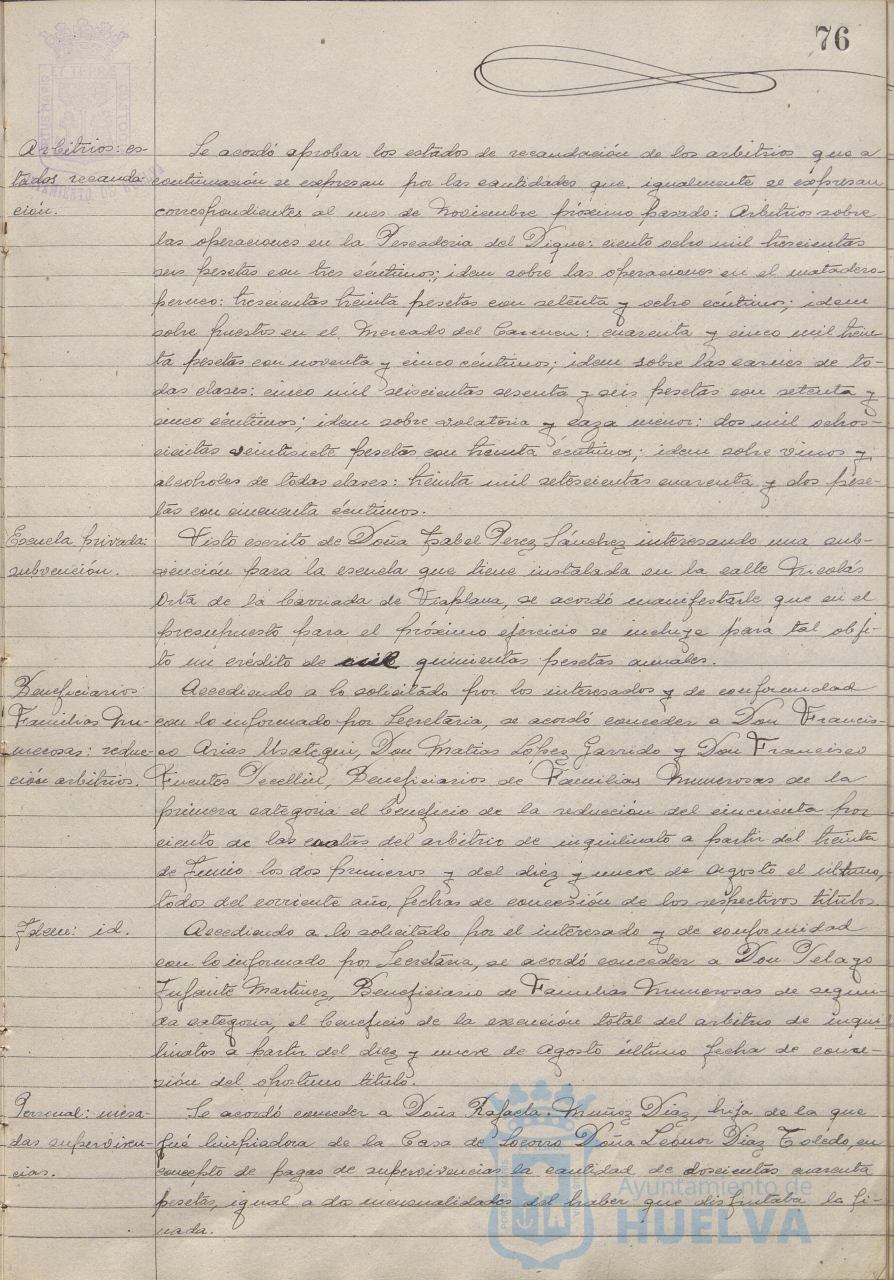 76
Arbitrios: es-
tados recauda-
ción.
Se acordó aprobar los estados de recaudación de los arbitrios que a
continuación se expresan por las cantidades que, igualmente se expresan
correspondientes al mes de Noviembre próximo pasado: Arbitrios sobre
las operaciones en la Pescaderia del Dique: ciento ocho mil trescientas
seis pesetas con tres céntimos; idem sobre las operaciones en el matadero
porcuno: trescientas treinta pesetas con setenta y ocho céntimos; idem
sobre puestos en el Mercado del Carmen: cuarenta y cinco mil trein-
ta pesetas con noventa y cinco céntimos; idem sobre las carnes de to-
das clases: cinco mil seiscientas sesenta y seis pesetas con setenta y
cinco céntimos; idem sobre volateria y caza menor: dos mil ochos-
cientas veintisiete pesetas con treinta céntimos; idem sobre vinos y
alcoholes de todas clases: treinta mil setescientas cuarenta y dos pese-
tas con cincuenta céntimos.
Escuela privada:
subvención.
Visto escrito de Doña Isabel Perez Sánchez interesando una sub-
vención para la escuela que tiene instalada en la calle Nicolás
Orta de la barriada de Viaplana, se acordó manifestarle que en el
presupuesto para el próximo ejercicio se incluye para tal obje-
to un crédito de quinientas pesetas anuales.
Beneficiarios
Familias Nu-
merosas: reduc-
ción arbitrios.
Accediendo a lo solicitado por los interesados y de conformidad
con lo informado por Secretaria, se acordó conceder a Don Francis-
co Arias Usategui, Don Matias López Garrido y Don Francisco
Fuentes Beneficiarios de Familias Numerosas de la
primera categoria el beneficio de la reducción del cincuenta por
ciento de las cuotas del arbitrio de inquilinato a partir del treinta
de Junio los dos primeros y del diez y nueve de Agosto el ultimo,
todos del corriente año, fechas de concesión de los respectivos titulos.
Idem: id.
Accediendo a lo solicitado por el interesado y de conformidad
con lo informado por Secretaria, se acordó conceder a Don Pelayo
Infante Martinez, Beneficiario de Familias Numerosas de segun-
da categoria, el beneficio de la exención total del arbitrio de inqui-
linatos a partir del diez y nueve de Agosto último fecha de conce-
sión del oportuno titulo.
Personal: mesa-
das superviven-
cias.
Se acordó conceder a Doña Rafaela Muñoz Diaz, hija de la que
fué limpiadora de la Casa de Socorro Doña Leonor Diaz Toledo, en
concepto de pagas de supervivencias la cantidad de doscientas cuarenta
pesetas, igual a dos mensualidades del haber que disfrutaba la fi-
nada.
Ayuntamiento de
HUELVA